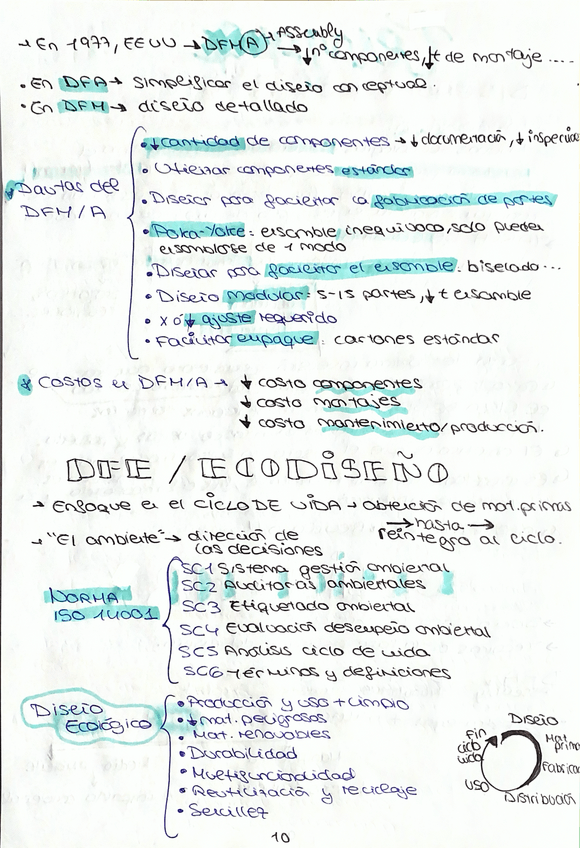 → En 1977, EEUU → DFMA → Assembly
→ ↓nº componentes, ↓t de montaje ....
• En DFA → simplificar el diseño conceptual
• En DFM → diseño detallado
Pautas del DFM/A
• ↓cantidad de componentes → ↓documentación, ↓
• Utilizar componentes estándar
• Diseñar para facilitar la fabricación de partes
• Poka-Yoke: ensamble inequívoco, solo puedes
ensamblarse de 1 modo
• Diseñar para facilitar el ensamble: biselado...
• Diseño modular: 5-15 partes, ↓t ensamble
• x ó ↓ajuste requerido
• Facilitar empaque: cartones estándar
* Costos en DFM/A → ↓ costo componentes
↓ costo montajes
↓ costo mantenimiento/producción.
DFE / ECODISEÑO
→ Enfoque en el CICLO DE VIDA → obtención de mat.primas
→ hasta →
reintegro al ciclo.
→ "El ambiente" → dirección de
las decisiones
NORMA
ISO 14001
SC1 Sistema gestión ambiental
SC2 Auditorías ambientales
SC3 Etiquetado ambiental
SC4 Evaluación desempeño ambiental
SC5 Análisis ciclo de vida
SC6 - términos y definiciones
Diseño
Ecológico
• Producción y uso + limpio
• ↓mat. peligrosos
• Mat. renovables
• Durabilidad
• Multifuncionalidad
• Reutilización y reciclaje
• Sencillez
Diseño
Mat prim
Fabricac
Distribución
uso
Fin
ciclo
vida
10